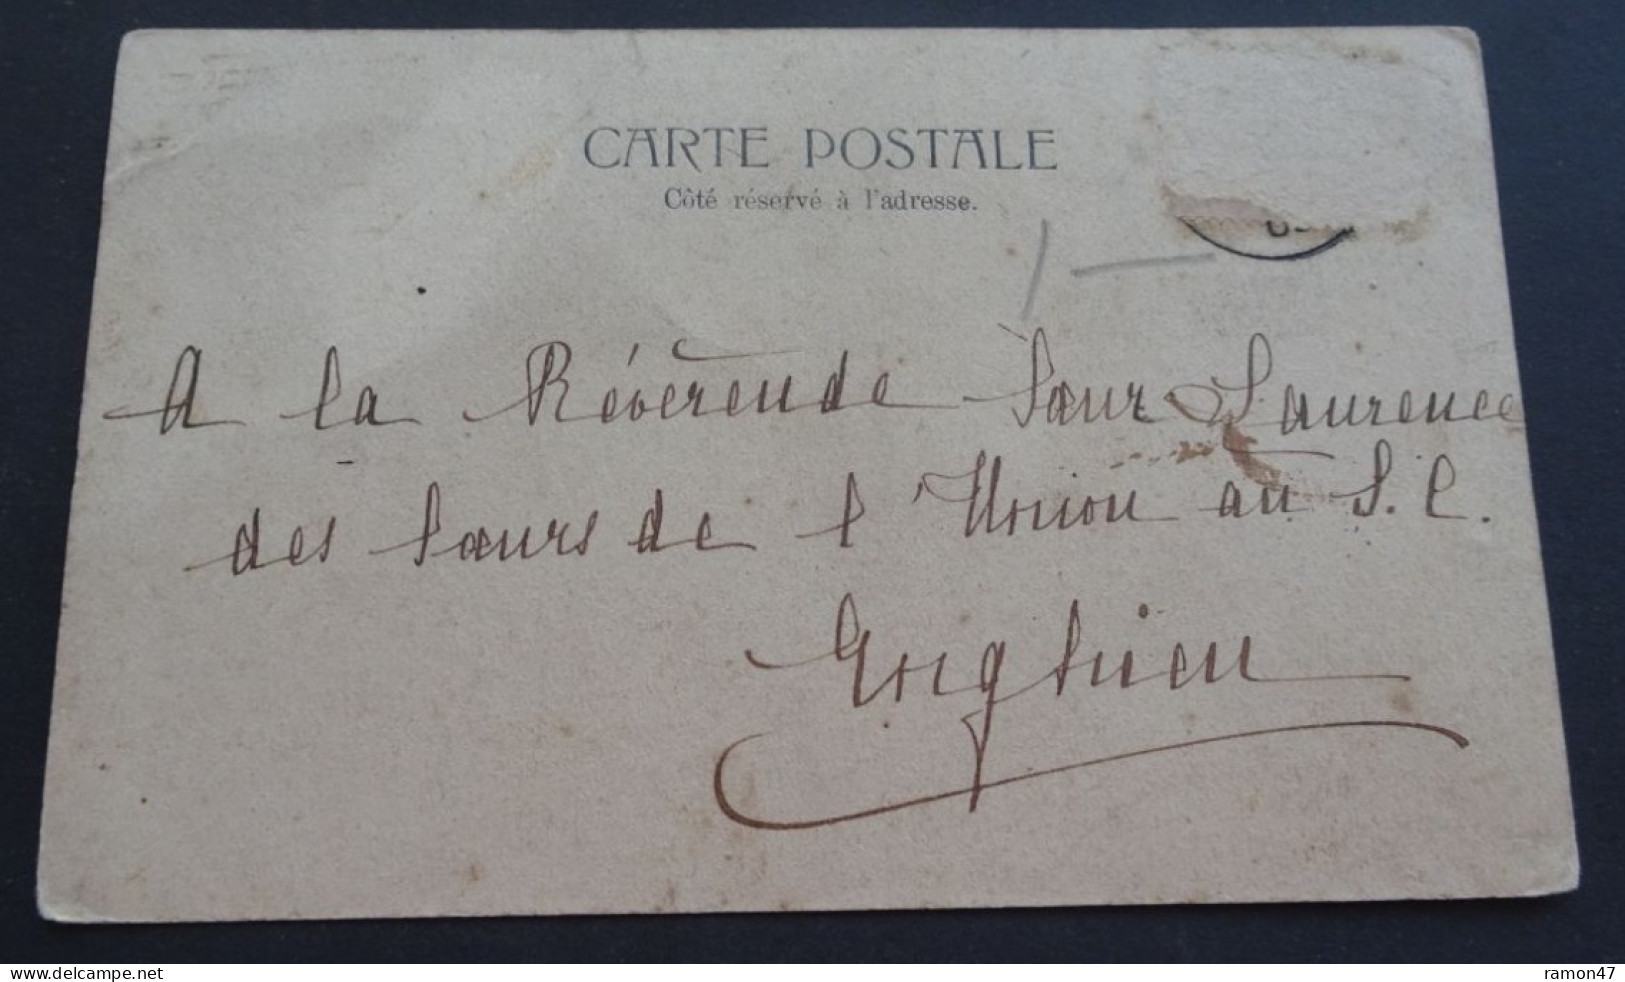 CARTE POSTALE
Côté réservé à l'adresse.
A la Révérende Sœur Laurence
des Sœurs de l'Union au S. C.
Enghien
www.delcampe.net
ramon47